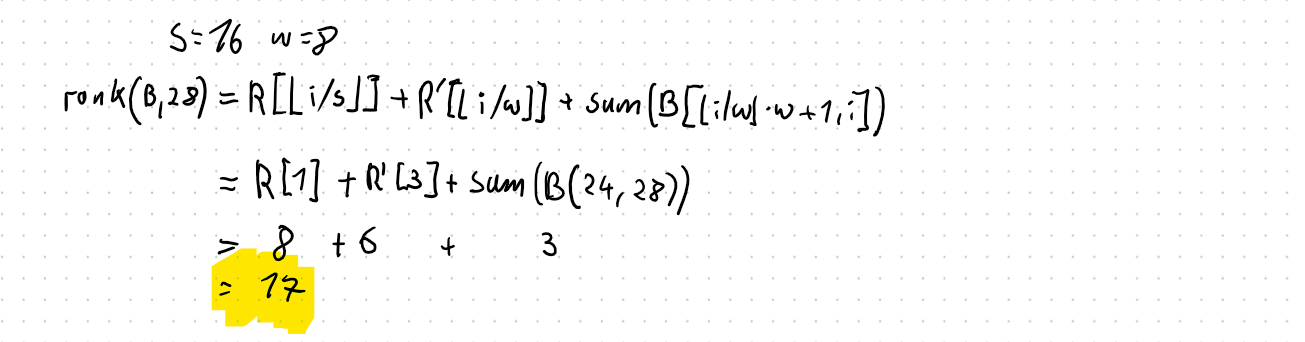 S=16 w=8
rank(B,28) = R[⌊i/s⌋] + R'[⌊i/w⌋] + sum(B[⌊i/w⌋·w+1,i])
= R[1] + R'[3] + sum(B(24,28))
= 8 + 6 + 3
= 17